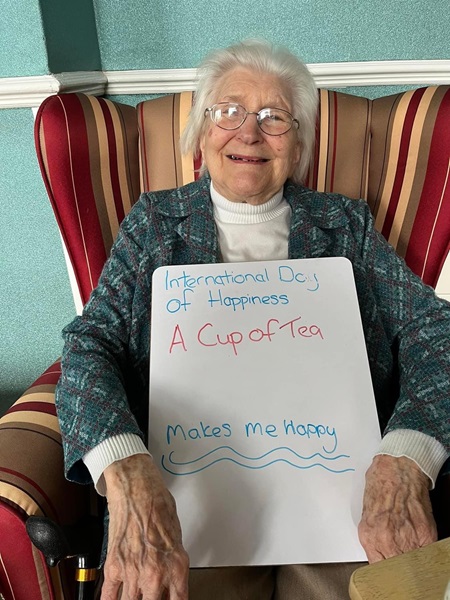 International Day
of Happiness
A Cup of Tea
Makes me Happy